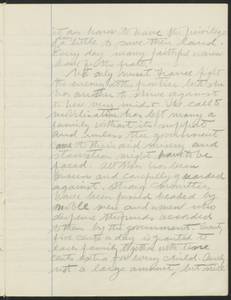 it an honor to have the privilege
of a little to save their land.
Every day many faithful wives
Not only must France fight
the enemy at the frontier but she
has another to strive against
in her very midst. The call to
mobilization has left many a
family without its support
and unless the government
to theirs and misery and
starvation might have to be
faced. All this has been
foreseen and carefully guarded
against. Strong committees
have been formed headed by
noble men and women who
dispense the funds accorded
them by the government. Twenty
five cents a day is granted to
each family together with
cents extra for every child.
not a large amount, but will